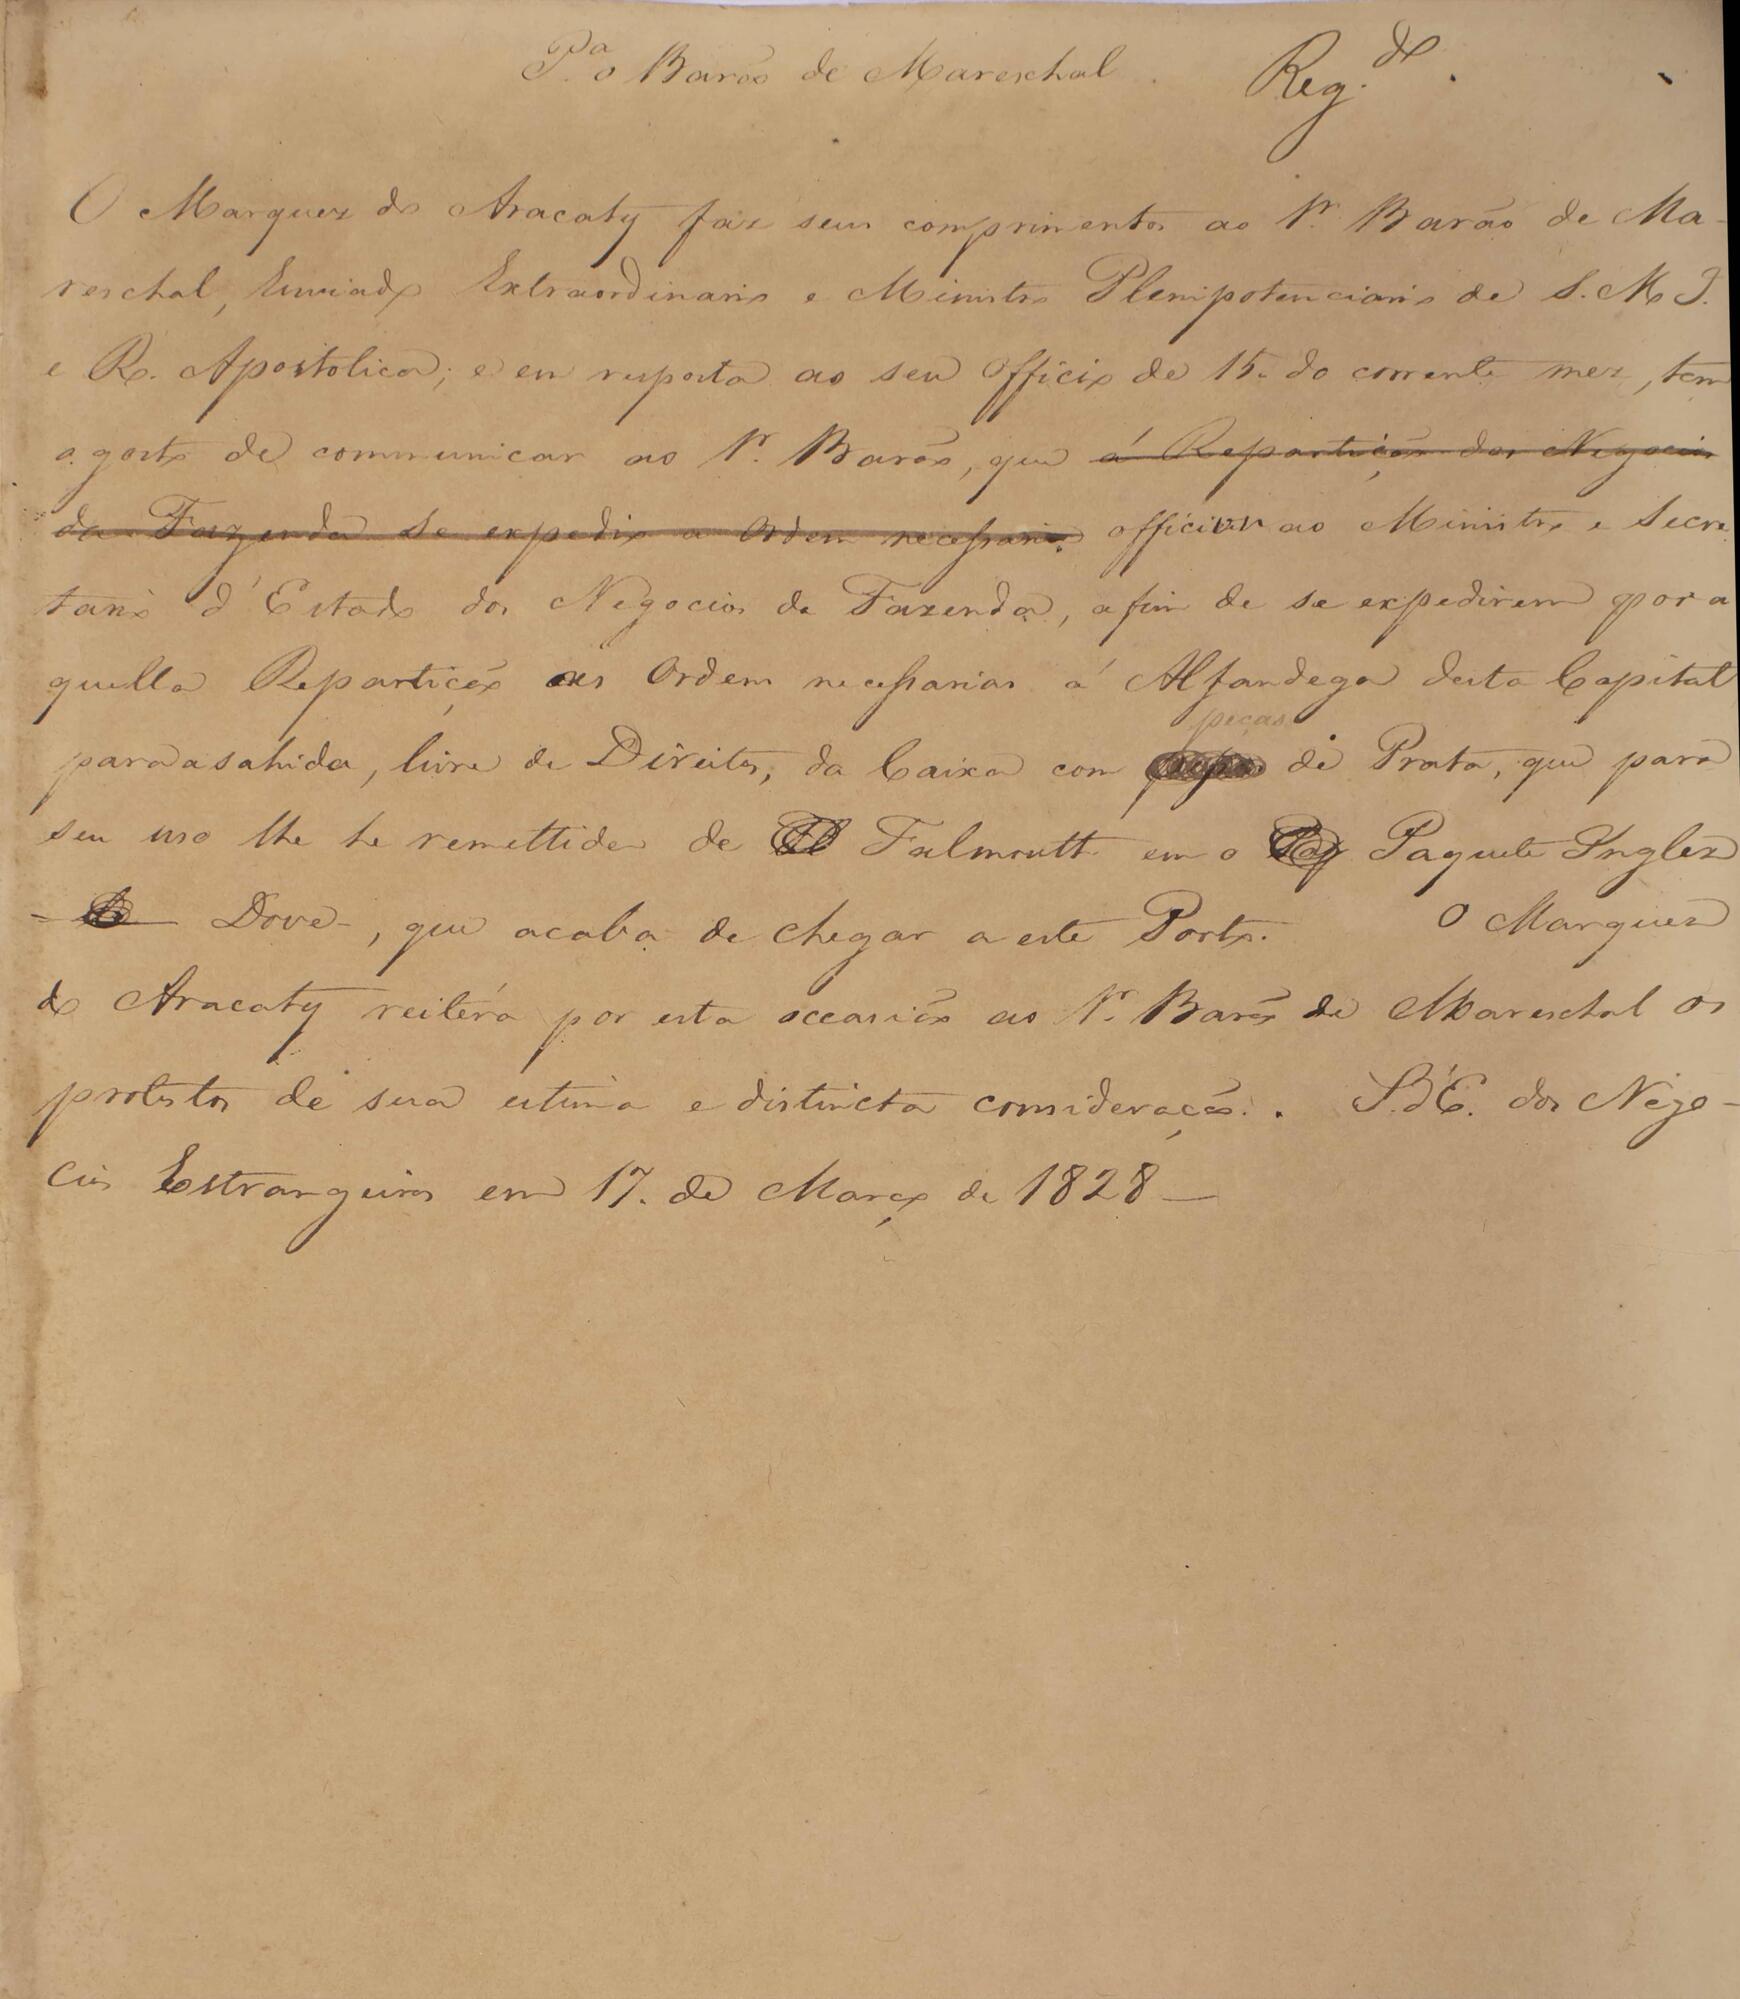 P.a o Barão de Mareschal. Reg.do
O Marquez do Aracaty faz seus comprimentos ao Sr. Barão de Ma-
reschal, Enviado Extraordinario e Ministro Plenipotenciario de S. M. I.
e R. Apostolica; e em resposta ao seu Officio de 15. do corrente mez, tem
o gosto de communicar ao Sr. Barão, que á Repartição dos Negocios
da Fazenda se expedio a Ordem necessaria officiou ao Ministro e Secre
tario d'Estado dos Negocios da Fazenda, afim de se expedirem por a
quella Repartição as Ordens necessarias á Alfandega desta Capital
peças
para a sahida, livre de Direitos, da Caixa com de Prata, que para
seu uso lhe he remettida de Falmouth em o Paquete Inglez
- Dove-, que acaba de chegar a este Porto. O Marquez
do Aracaty reitéra por esta occasião ao Sr. Barão de Mareschal os
protestos de sua estima e distincta consideração. S. d'E. dos Nego-
cios Estrangeiros em 17. de Março de 1828 —